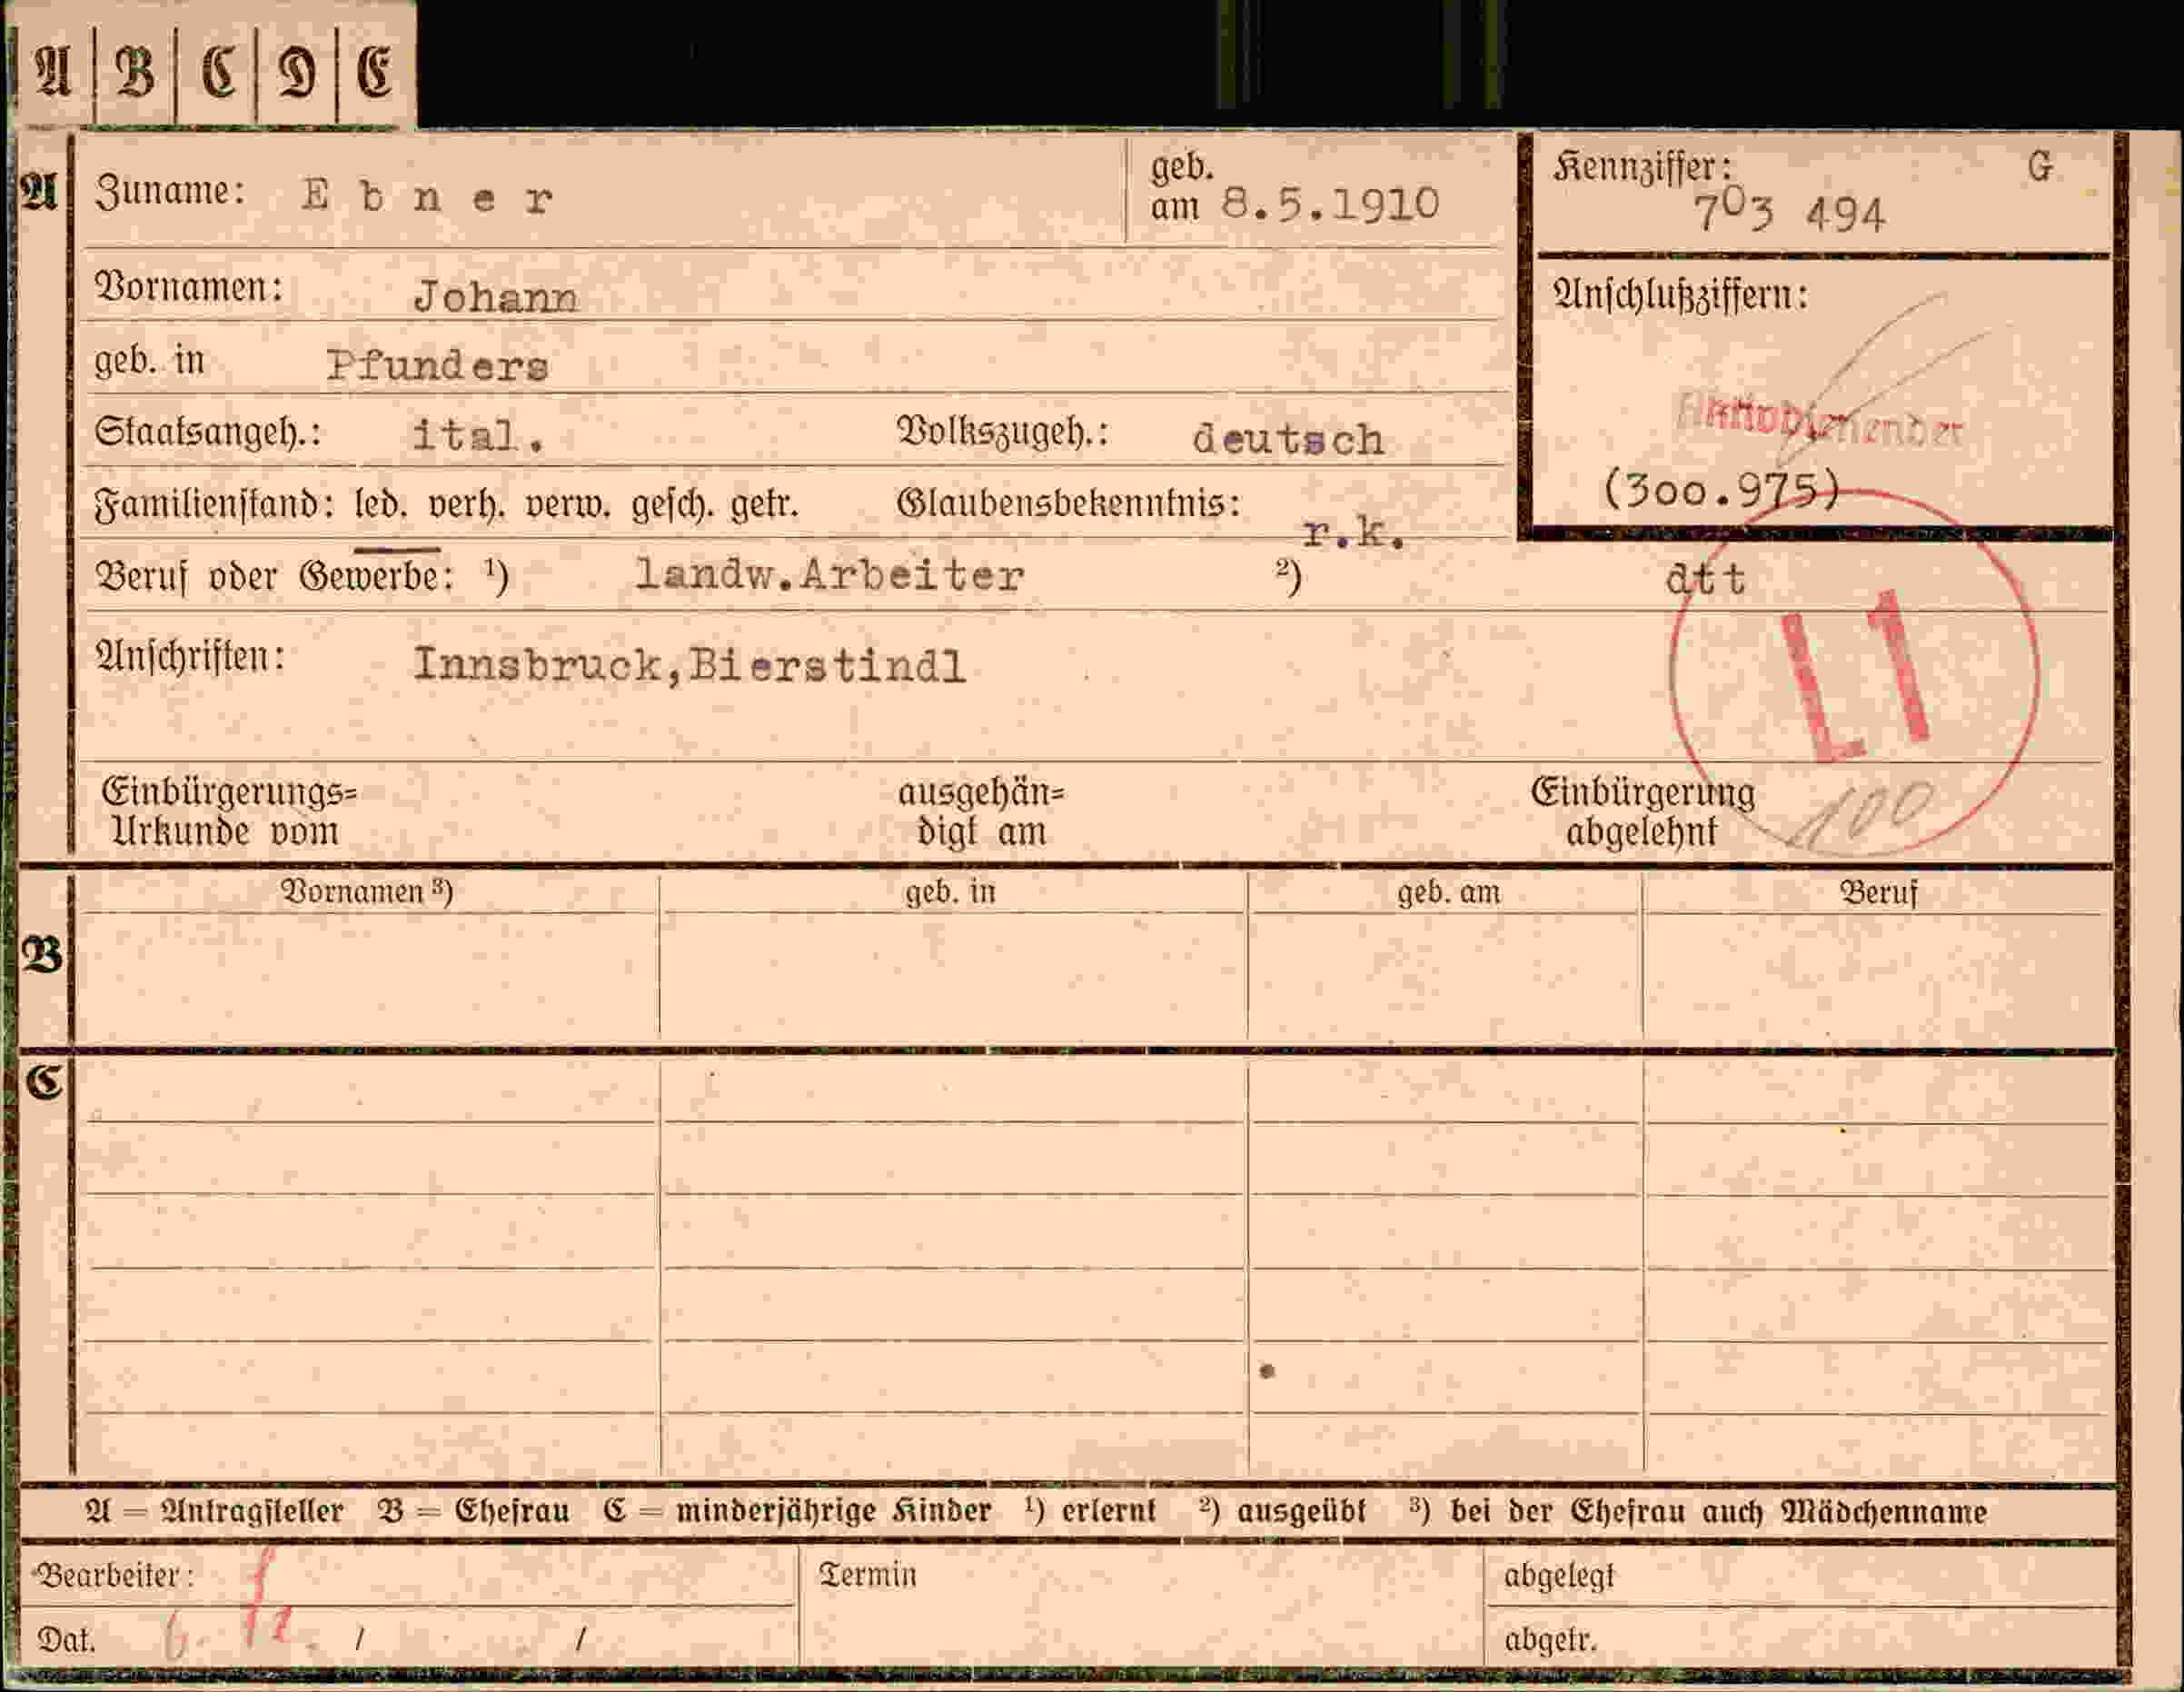 A B C D E
A Zuname: Ebner geb. am 8.5.1910 Kennziffer: G
703 494
Vornamen: Johann Anschlußziffern:
geb. in Pfunders
Staatsangeh.: ital. Volkszugeh.: deutsch
(300.975)
Familienstand: led. verh. verw. gesch. getr. Glaubensbekenntnis: r.k.
Beruf oder Gewerbe: ¹) landw.Arbeiter ²) dtt
Anschriften: Innsbruck,Bierstindl
L1
Einbürgerungs=
Urkunde vom
ausgehän=
digt am
Einbürgerung
abgelehnt
100
B Vornamen ³) geb. in geb. am Beruf
C
A = Antragsteller B = Ehefrau C = minderjährige Kinder ¹) erlernt ²) ausgeübt ³) bei der Ehefrau auch Mädchenname
Bearbeiter: Termin abgelegt
Dat. / / abgetr.